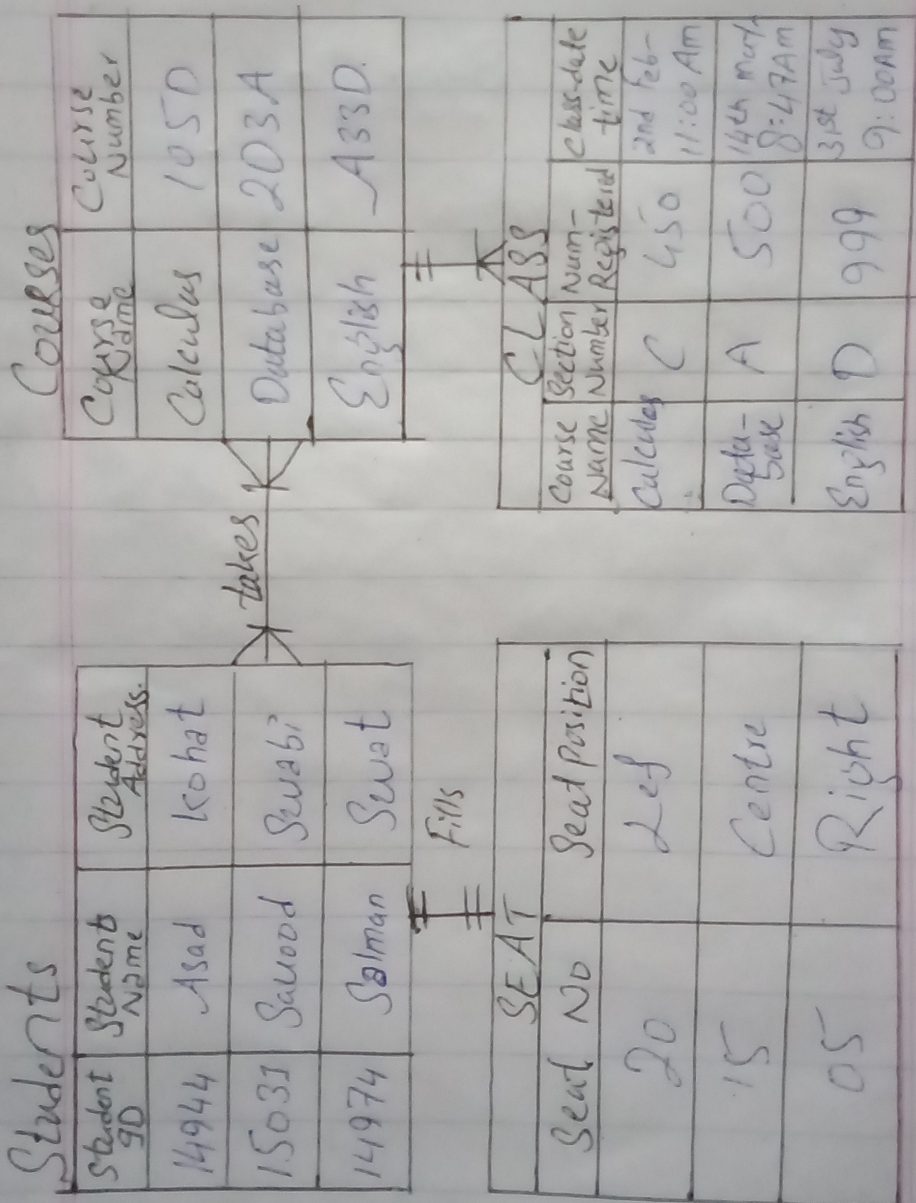 Students
Student ID Students Name Student Address.
14944 Asad Kohat
15031 Sauood Swabi
14974 Salman Swat
takes
Courses
Course Name Course Number
Calculus 105D
Database 203A
English A33D.
Fills
SEAT
Seat No Seat Position
20 Lef
15 Centre
05 Right
CLASS
Course Name Section Number Num-Registered Class-date time
Calculus C 450 2nd Feb- 11:00 Am
Data-base A 500 14th 8:47AM
English D 999 31st July 9:00AM